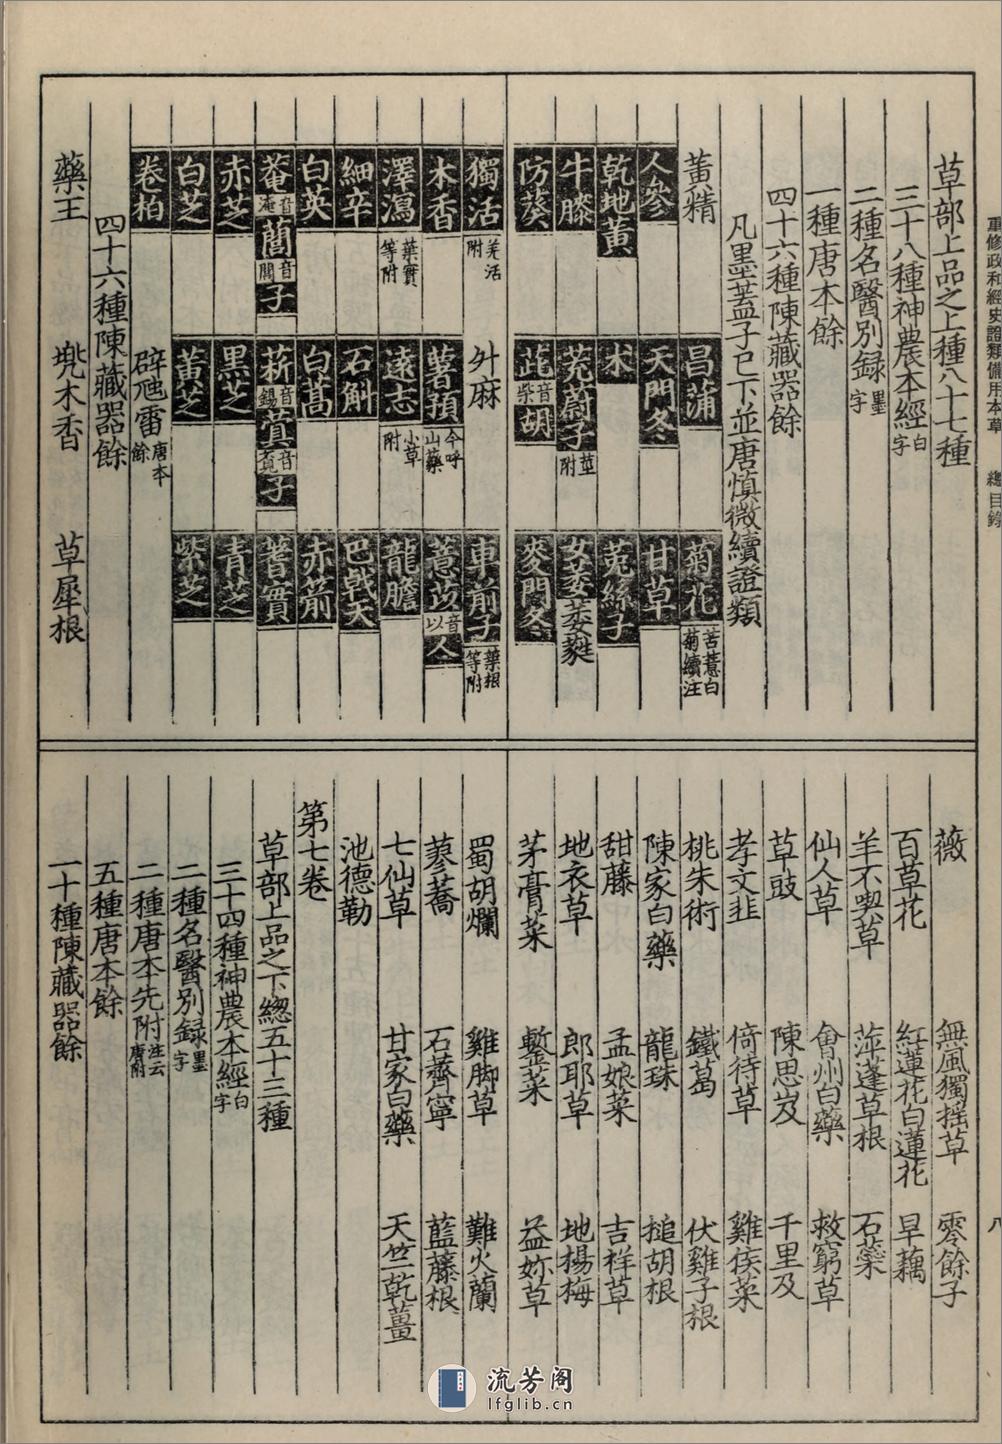 重修政和經史證類備用本草 總目錄
八
草部上品之上種八十七種
三十八種神農本經白字
二種名醫別録墨字
一種唐本餘
四十六種陳藏器餘
凡墨蓋子已下並唐慎微續證類
黄精 昌蒲 菊花苦薏白菊續注
人參 天門冬 甘草
乾地黄 术 菟絲子
牛膝 茺蔚子莖附 女萎萎蕤
防葵 茈音柴胡 麥門冬
獨活羌活附 升麻 車前子葉根等附
木香 薯蕷今呼山藥 薏苡音以人
澤瀉葉實等附 遠志小草附 龍膽
細辛 石斛 巴戟天
白英 白蒿 赤箭
菴音淹䕡音閭子 菥音錫蓂音覓子 蓍實
赤芝 黑芝 青芝
白芝 黄芝 紫芝
卷柏 辟虺雷唐本餘
四十六種陳藏器餘
藥王 兠木香 草犀根
薇 無風獨摇草 零餘子
百草花 紅蓮花白蓮花 旱藕
羊不喫草 萍蓬草根 石蘂
仙人草 會州白藥 救窮草
草豉 陳思岌 千里及
孝文韭 倚待草 雞侯菜
桃朱術 鐵葛 伏雞子根
陳家白藥 龍珠 搥胡根
甜藤 孟娘菜 吉祥草
地衣草 郎耶草 地楊梅
茅膏菜 鏨菜 益妳草
蜀胡爛 雞脚草 難火蘭
蓼蕎 石薺寧 藍藤根
七仙草 甘家白藥 天竺乾薑
池德勒
第七卷
草部上品之下緫五十三種
三十四種神農本經白字
二種名醫別録墨字
二種唐本先附注云唐附
五種唐本餘
一十種陳藏器餘
流芳阁
lfglib.cn